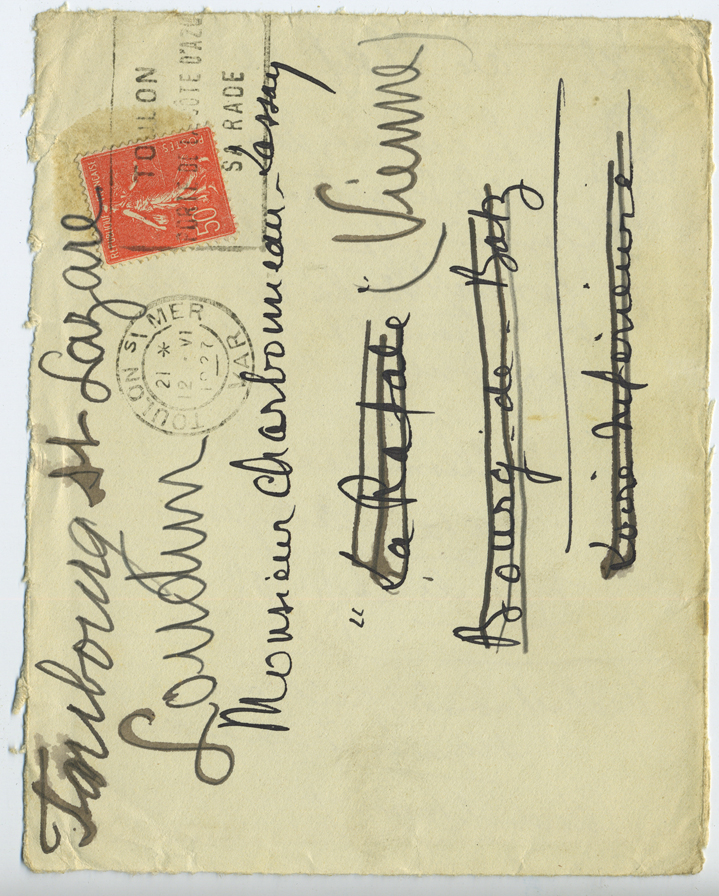 TOULON
CÔTE D'AZU
SA RADE
REPUBLIQUE FRANÇAISE
POSTES
50c
TOULON S/ MER VAR
21 *
12 · VI
1927
Faubourg St Lazare
Loudun
Monsieur Charbonneau-Lassay
"La Rafale" (Vienne)
Bourg-de-Batz
Loire Inférieure